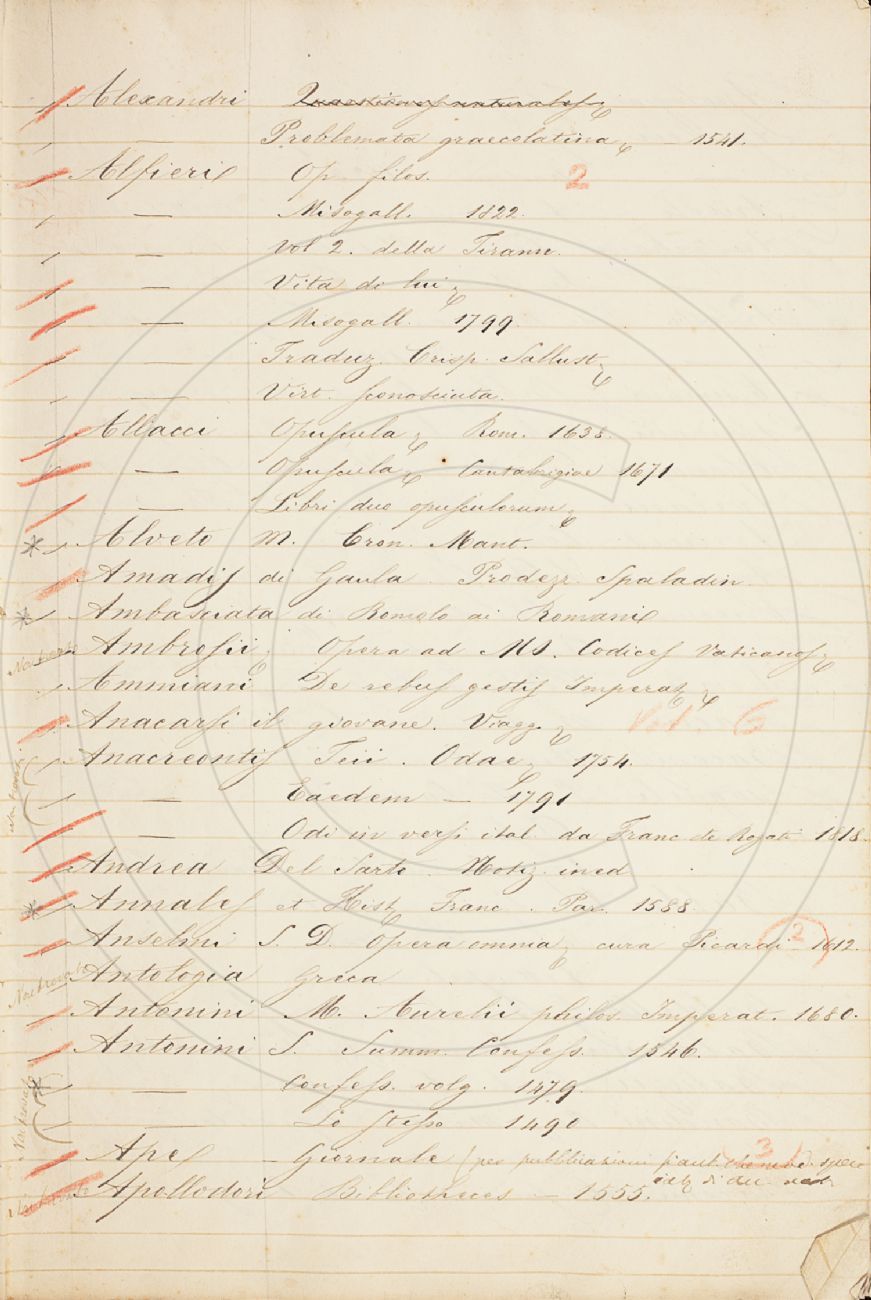 Alexandri Quaestiones naturales
— Problemata graecolatina — 1541.
Alfieri Op. filos. 2
— Misogall. 1822.
— Vol 2. della Tirann.
— Vita di lui
— Misogall. 1799.
— Traduz. Crisp. Sallust.
— Virt. sconosciuta.
Allacci Opuscula Rom. 1638.
— Opuscula Cantabrigiae 1671
— Libri duo opusculorum
* Alveto M. Cron. Mant.
Amadis di Gaula. Prodezz. Spaladin.
* Ambasciata di Romolo ai Romani
Ambrosii Opera ad MS. Codices Vaticanos
Ammiani De rebus gestis Imperat.
Anacarsi il giovane. Viagg. Vol. 6
Anacreontis Teii. Odae 1754.
— Eaedem — 1791
— Odi in versi ital. da Franc. de Rogati 1818.
Andrea Del Sarto. Notiz. ined
* Annales et Hist. Franc. Par. 1588.
Anselmi S. D. Opera omnia cura Picardi 1612. 2
Non trovato Antologia Greca
Antonini M. Aurelii philos. Imperat. 1680.
Antonini S. Summ. Confess. 1546.
* — Confess. volg. 1479.
Non trovato — Lo stesso 1490
Ape — Giornale (per pubblicazioni 3
Apollodori Bibliotheces — 1555.